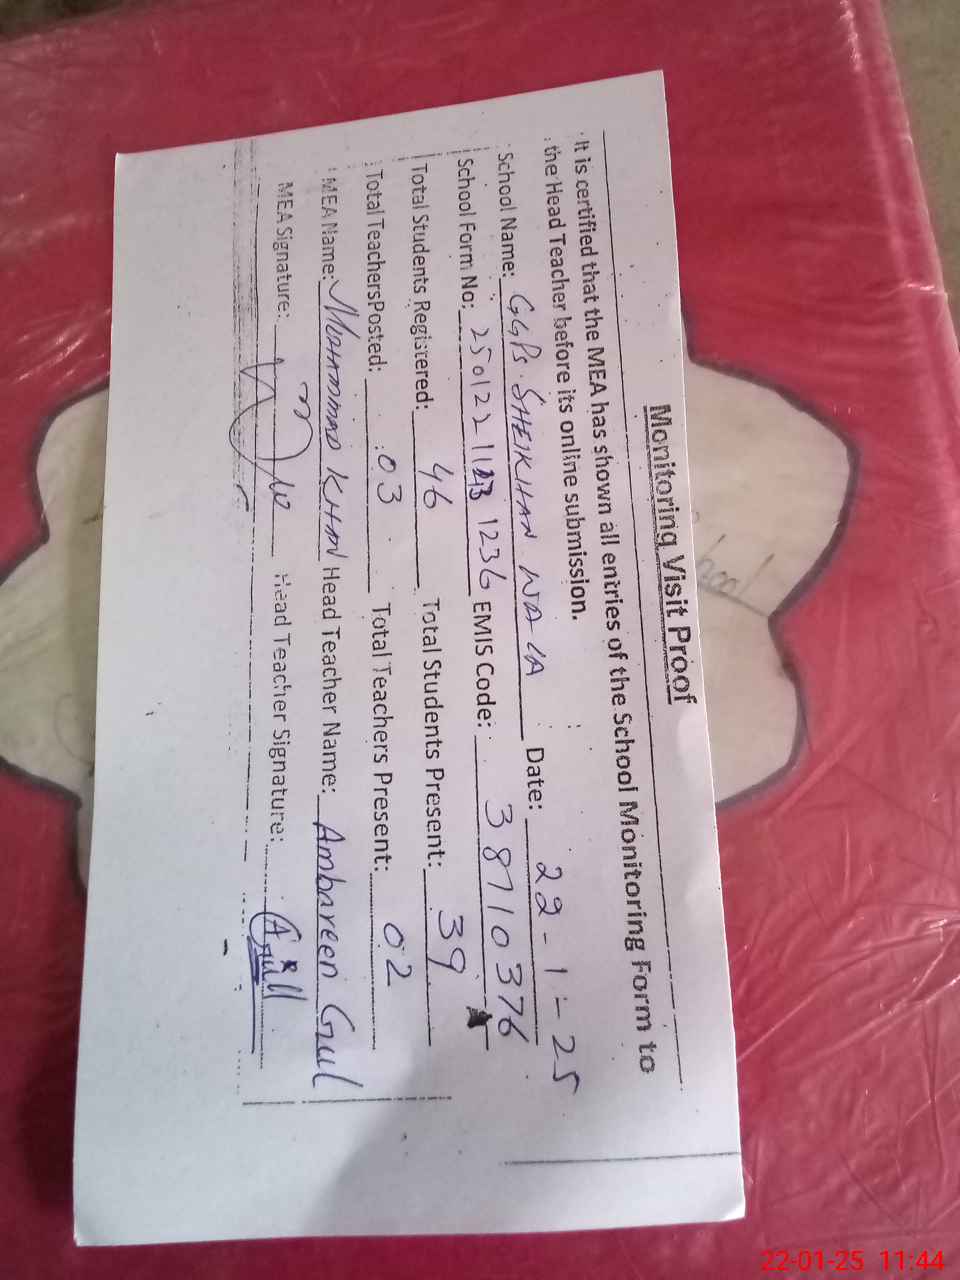 Monitoring Visit Proof
It is certified that the MEA has shown all entries of the School Monitoring Form to
the Head Teacher before its online submission.
School Name: GGPS SHEIKHAN WALA Date: 22-1-25
School Form No: 1236 EMIS Code: 38710376
Total Students Registered: 46 Total Students Present: 39
Total TeachersPosted: 03 Total Teachers Present: 02
MEA Name: MOHAMMAD KHAN Head Teacher Name: Ambareen Gul
MEA Signature: Head Teacher Signature: A.Gull
22-01-25 11:44